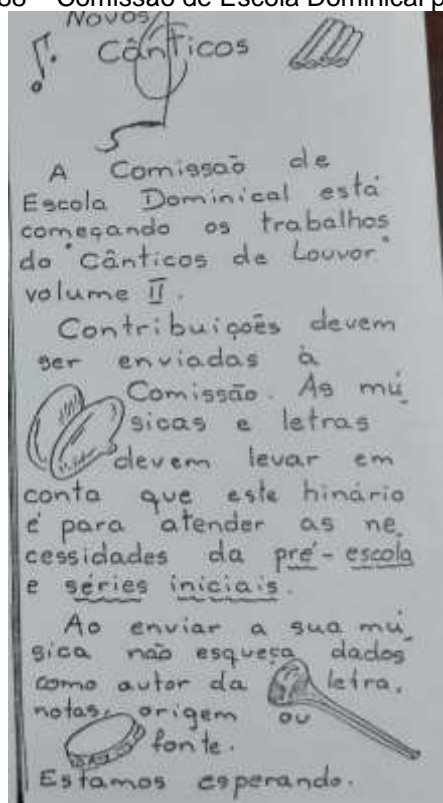 Comissão de Escola Dominical p
Novos
Cânticos
A Comissão de
Escola Dominical está
começando os trabalhos
do "Cânticos de Louvor"
volume II.
Contribuições devem
ser enviadas à
Comissão. As mú
sicas e letras
devem levar em
conta que este hinário
é para atender as ne
cessidades da pré-escola
e séries iniciais.
Ao enviar a sua mú
sica não esqueça dados
como autor da letra,
notas, origem ou
fonte.
Estamos esperando.